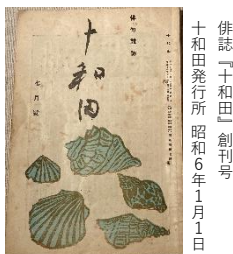 俳誌『十和田』創刊号
十和田発行所 昭和6年1月1日
俳句雜誌
十和田